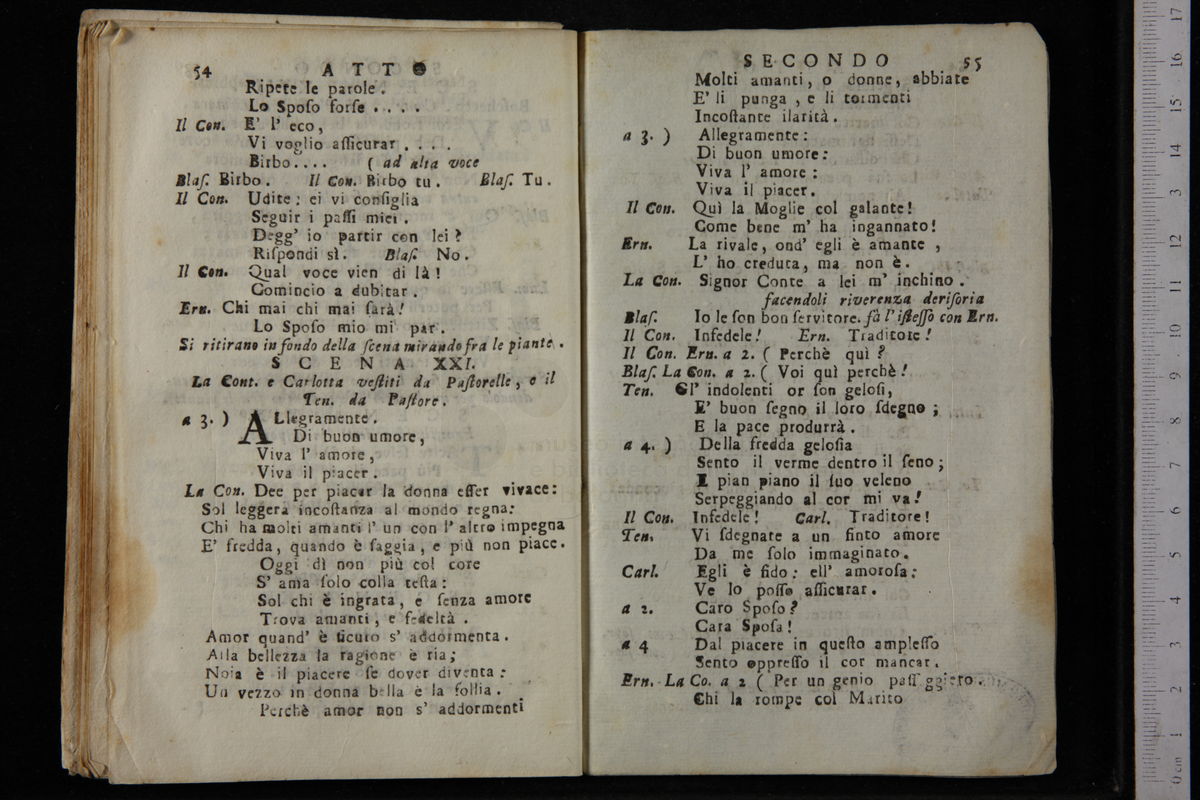 54 ATTO
Ripete le parole.
Lo Spoſo forſe . . . .
Il Con. E' l' eco,
Vi voglio aſſicurar . . . .
Birbo.... ( ad alta voce
Blaſ. Birbo. Il Con. Birbo tu. Blaſ. Tu.
Il Con. Udite; ei vi conſiglia
Seguir i paſſi miei.
Degg' io partir con lei?
Riſpondi sì. Blaſ. No.
Il Con. Qual voce vien di là!
Comincio a dubitar.
Ern. Chi mai chi mai ſarà!
Lo Spoſo mio mi par.
Si ritirano in fondo della ſcena mirando fra le piante.
SCENA XXI.
La Cont. e Carlotta veſtiti da Paſtorelle, e il
Ten. da Paſtore.
a 3. ) ALlegramente.
Di buon umore,
Viva l' amore,
Viva il piacer.
La Con. Dee per piacer la donna eſſer vivace:
Sol leggera incoſtanza al mondo regna:
Chi ha molti amanti l' un con l' altro impegna
E' fredda, quando è ſaggia, e più non piace.
Oggi dì non più col core
S' ama ſolo colla teſta:
Sol chi è ingrata, e ſenza amore
Trova amanti, e fedeltà.
Amor quand' è ſicuro s' addormenta.
Alla bellezza la ragione è ria;
Noia è il piacere ſe dover diventa:
Un vezzo in donna bella è la follia.
Perchè amor non s' addormenti
SECONDO 55
Molti amanti, o donne, abbiate
E' li punga, e li tormenti
Incoſtante ilarità.
a 3. ) Allegramente:
Di buon umore:
Viva l' amore:
Viva il piacer.
Il Con. Quì la Moglie col galante!
Come bene m' ha ingannato!
Ern. La rivale, ond' egli è amante,
L' ho creduta, ma non è.
La Con. Signor Conte a lei m' inchino.
facendoli riverenza deriſoria
Blaſ. Io le ſon bon ſervitore. fà l'iſteſſo con Ern.
Il Con. Infedele! Ern. Traditore!
Il Con. Ern. a 2. ( Perchè quì?
Blaſ. La Con. a 2. ( Voi quì perchè!
Ten. Gl' indolenti or ſon geloſi,
E' buon ſegno il loro ſdegno;
E la pace produrrà.
a 4. ) Della fredda geloſia
Sento il verme dentro il ſeno;
E pian piano il ſuo veleno
Serpeggiando al cor mi va!
Il Con. Infedele! Carl. Traditore!
Ten. Vi ſdegnate a un finto amore
Da me ſolo immaginato.
Carl. Egli è fido: ell' amoroſa:
Ve lo poſſo aſſicurar.
a 2. Caro Spoſo?
Cara Spoſa!
a 4 Dal piacere in queſto ampleſſo
Sento oppreſſo il cor mancar.
Ern. La Co. a 2 ( Per un genio paſſ ggiero.
Chi la rompe col Marito